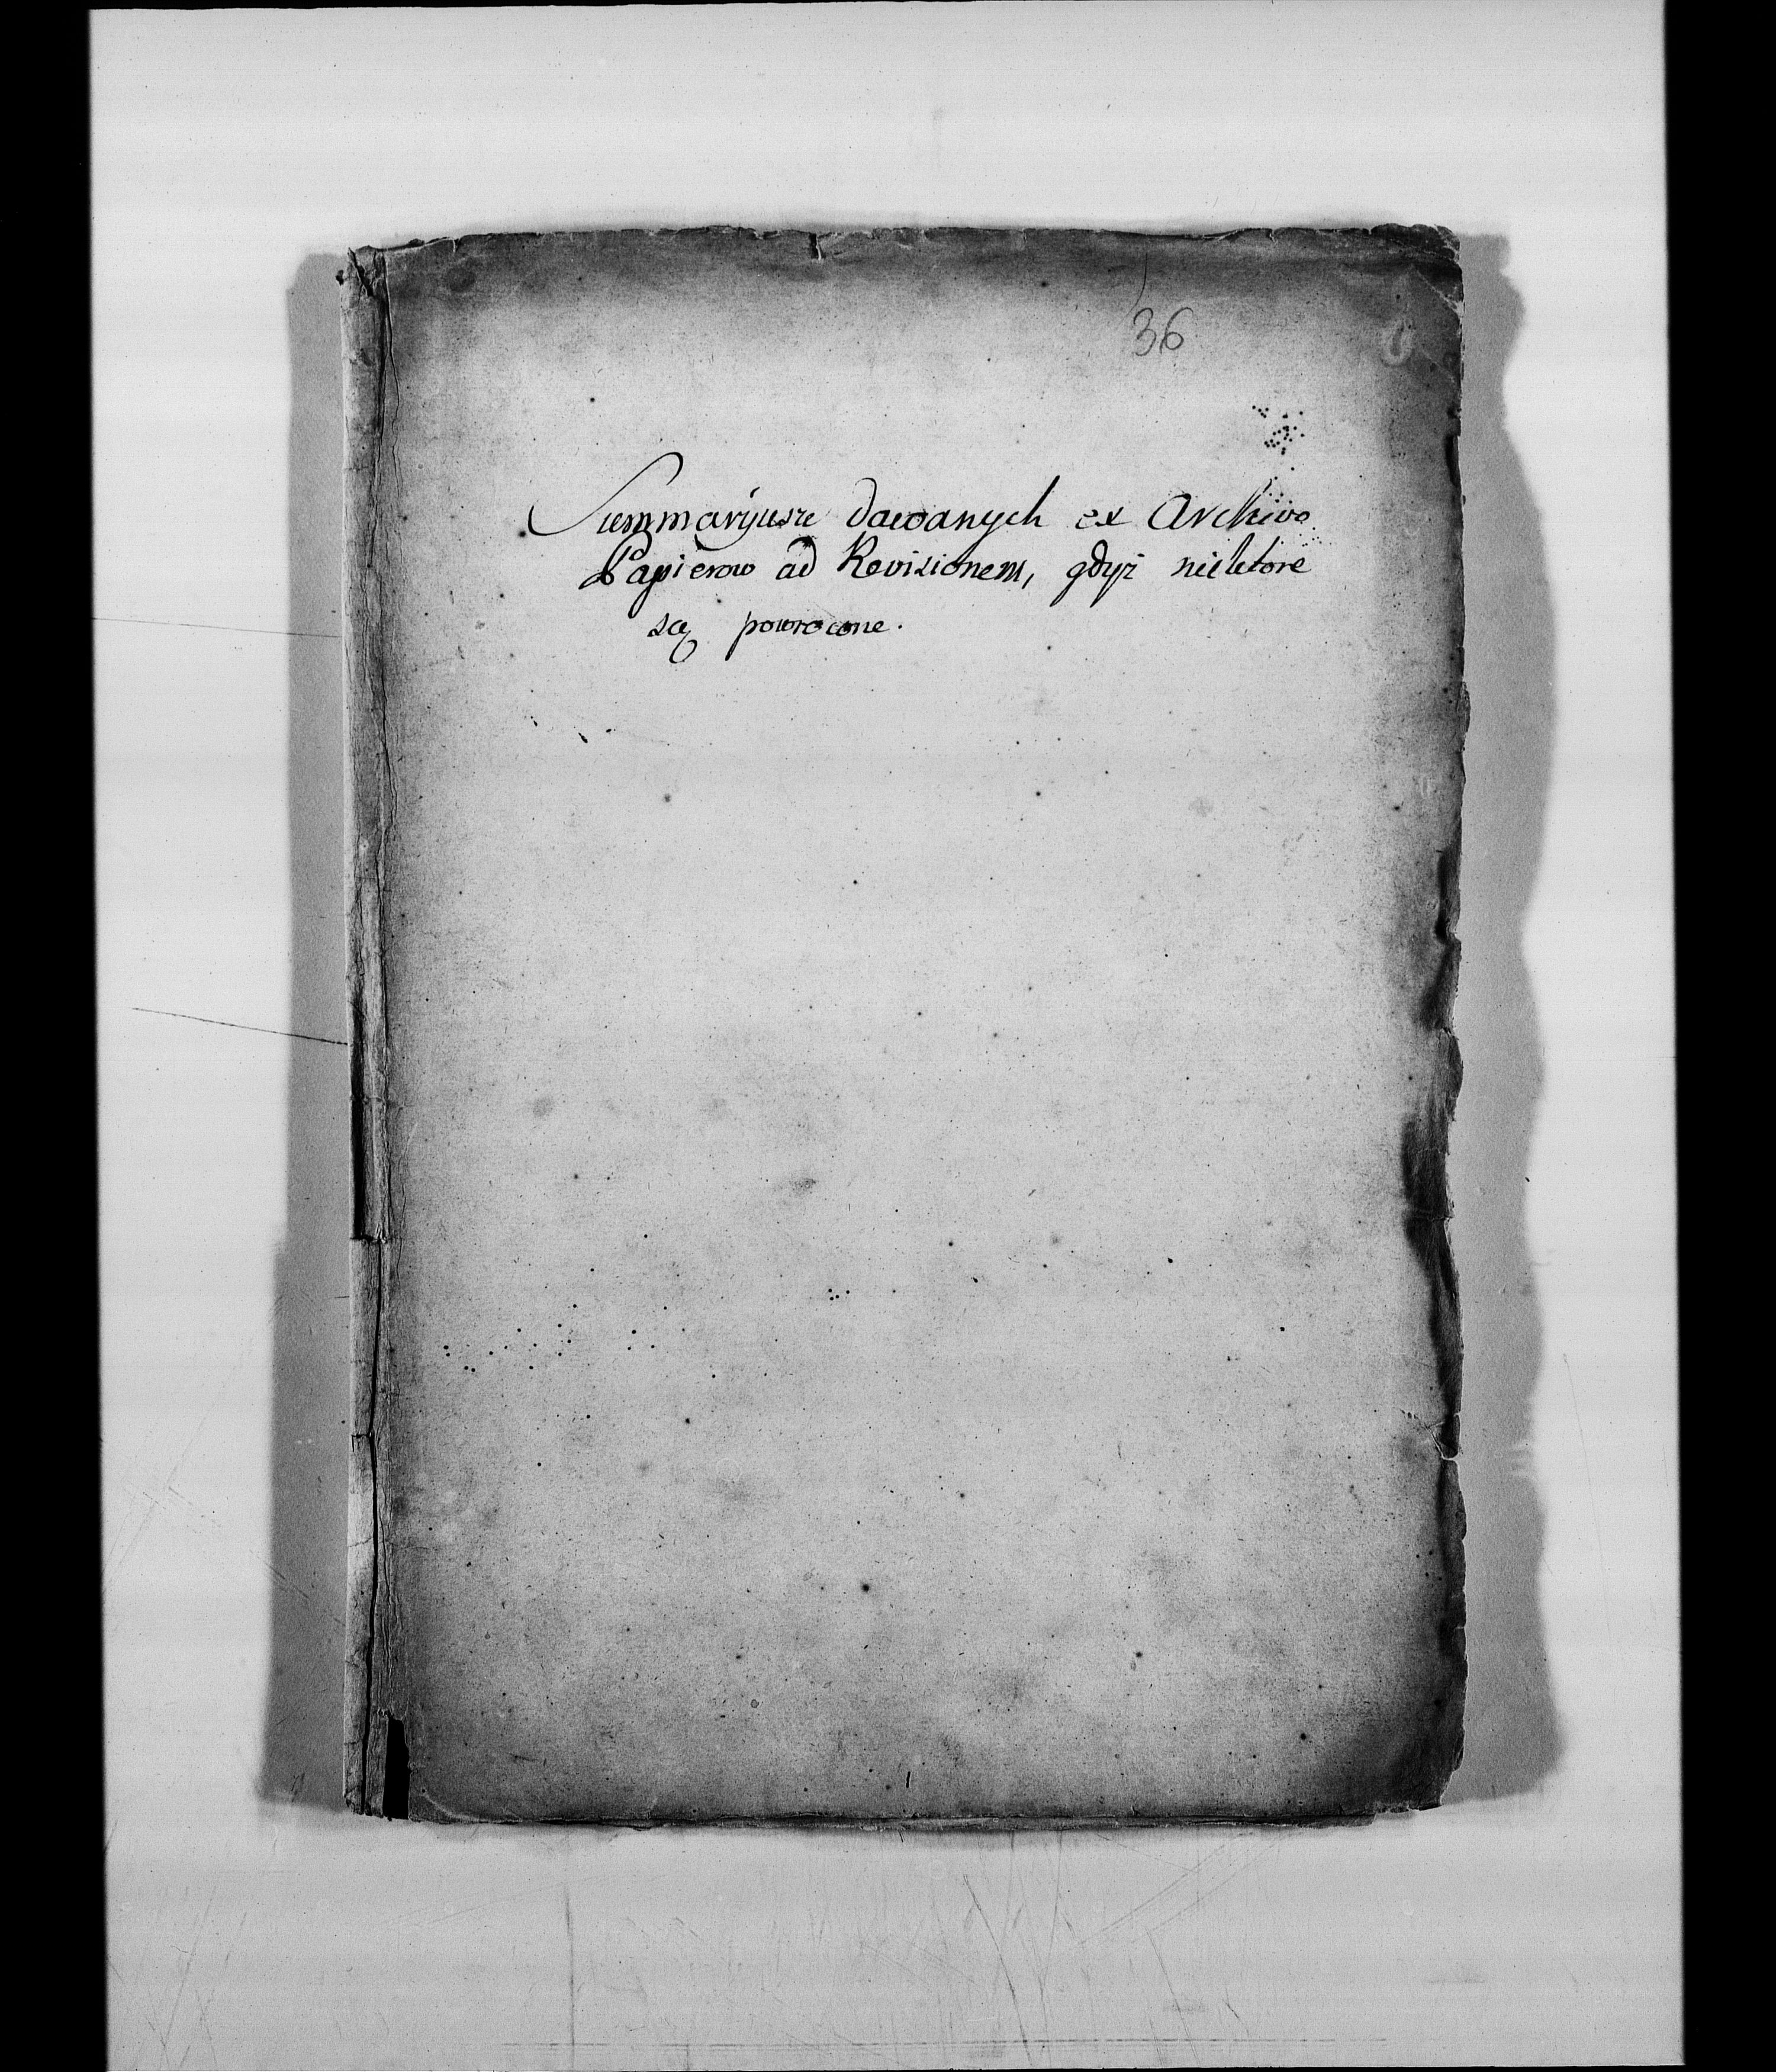 36
Summaryusze dawanych ex Archivo
Papierow ad Revisionem, gdyż niektore
są powrocone.